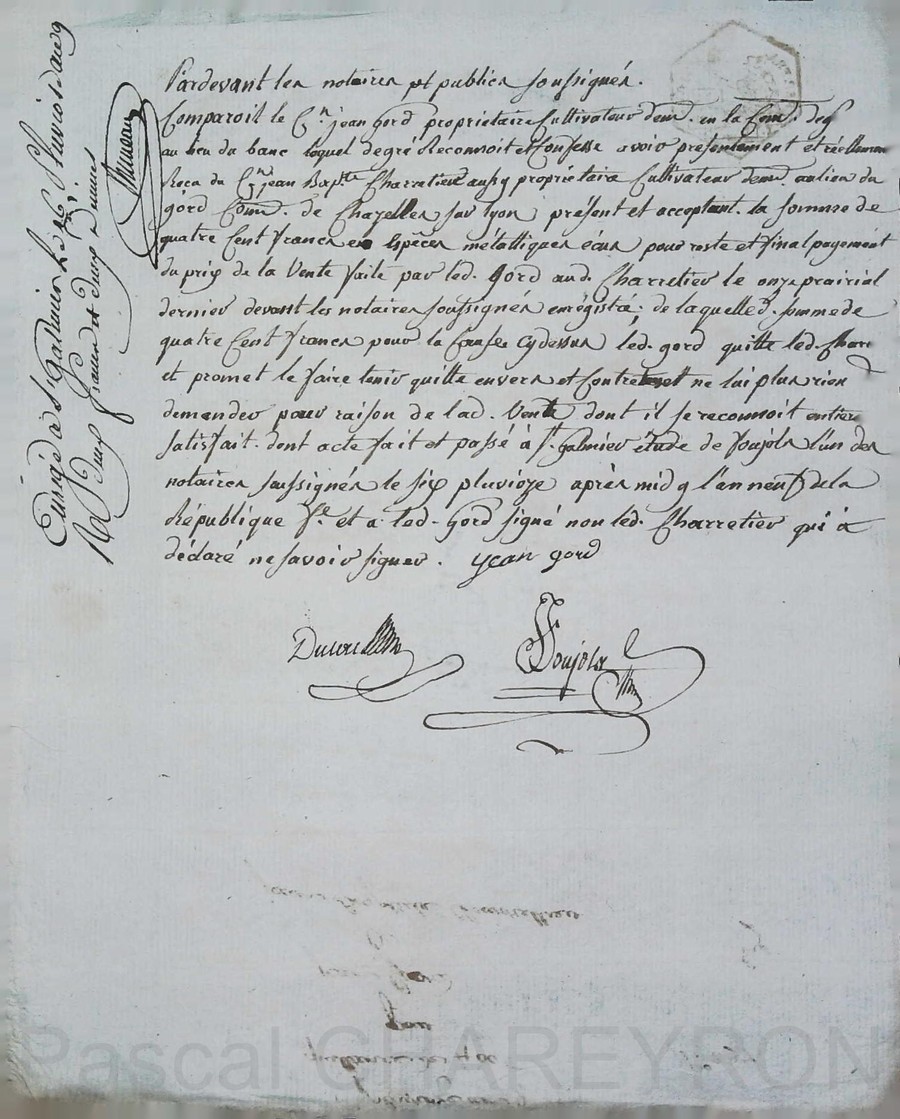 Pardevant les notaires et publics soussignés.
Comparoit le Cn. jean Gord propriétaire Cultivateur demt. en la Com.
au lieu du banc lequel de gré Reconnoit et Confesse avoir présentement et réellement
Reçu du Cn. jean Bapte. Charretier aussy propriétaire Cultivateur demt. au lieu du
gord Com. de Chazelles sur lyon présent et acceptant. la somme de
quatre Cent francs en Espèces métalliques écus pour reste et final payement
du prix de la Vente faite par led. Gord aud. Charretier le onze prairial
dernier devant les notaires soussignés enrégistré; de laquelle d. somme de
quatre Cent francs pour la Cause Cydessus led. gord quitte led. Char
et promet le faire tenir quitte envers et Contre ne lui plus rien
demander pour raison de lad. Vente dont il se reconnoit entier
satisfait. dont acte fait et passé à St. galmier étude de Soujols l'un des
notaires soussignés le six pluvioze après midy l'an neuf de la
République f.se et a led. Gord signé non led. Charretier qui a
déclaré ne savoir signer. jean gord
Soujols
Enrgé a St Galmier Le
Pascal CHAREYRON